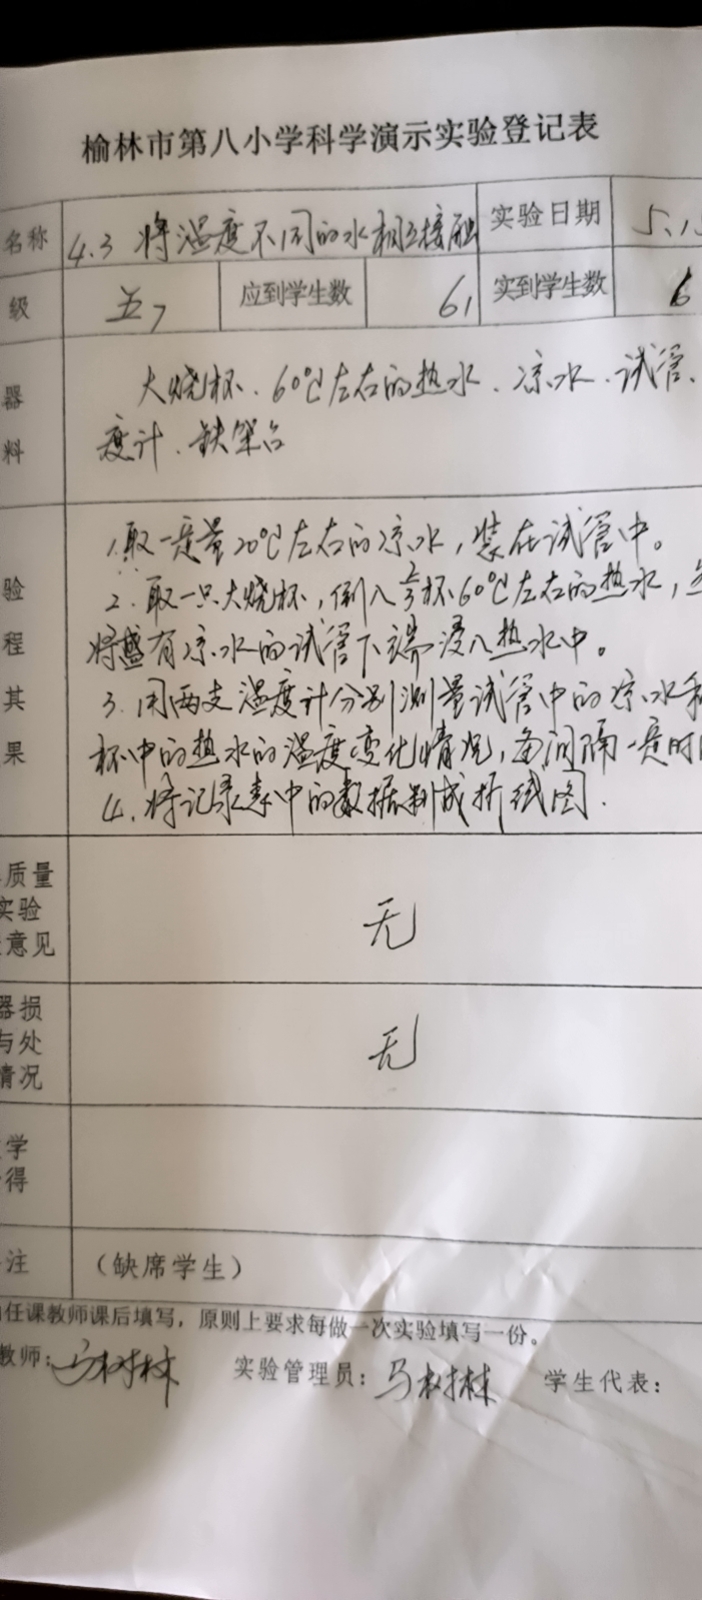 榆林市第八小学科学演示实验登记表
名称 4.3 将温度不同的水相互接触 实验日期 5.1
级 五7 应到学生数 61 实到学生数 6
器 大烧杯、60℃左右的热水、凉水、试管、
料 度计、铁架台
1.取一定量20℃左右的凉水，装在试管中。
验 2.取一只大烧杯，倒入2/3杯60℃左右的热水，
程 将盛有凉水的试管下端浸入热水中。
其 3.用两支温度计分别测量试管中的凉水和
果 杯中的热水的温度变化情况，每间隔一定时
4.将记录表中的数据制成折线图.
质量
实验
意见 无
器损
与处
情况 无
学
得
注 （缺席学生）
任课教师课后填写，原则上要求每做一次实验填写一份。
教师：马树林 实验管理员：马树林 学生代表：